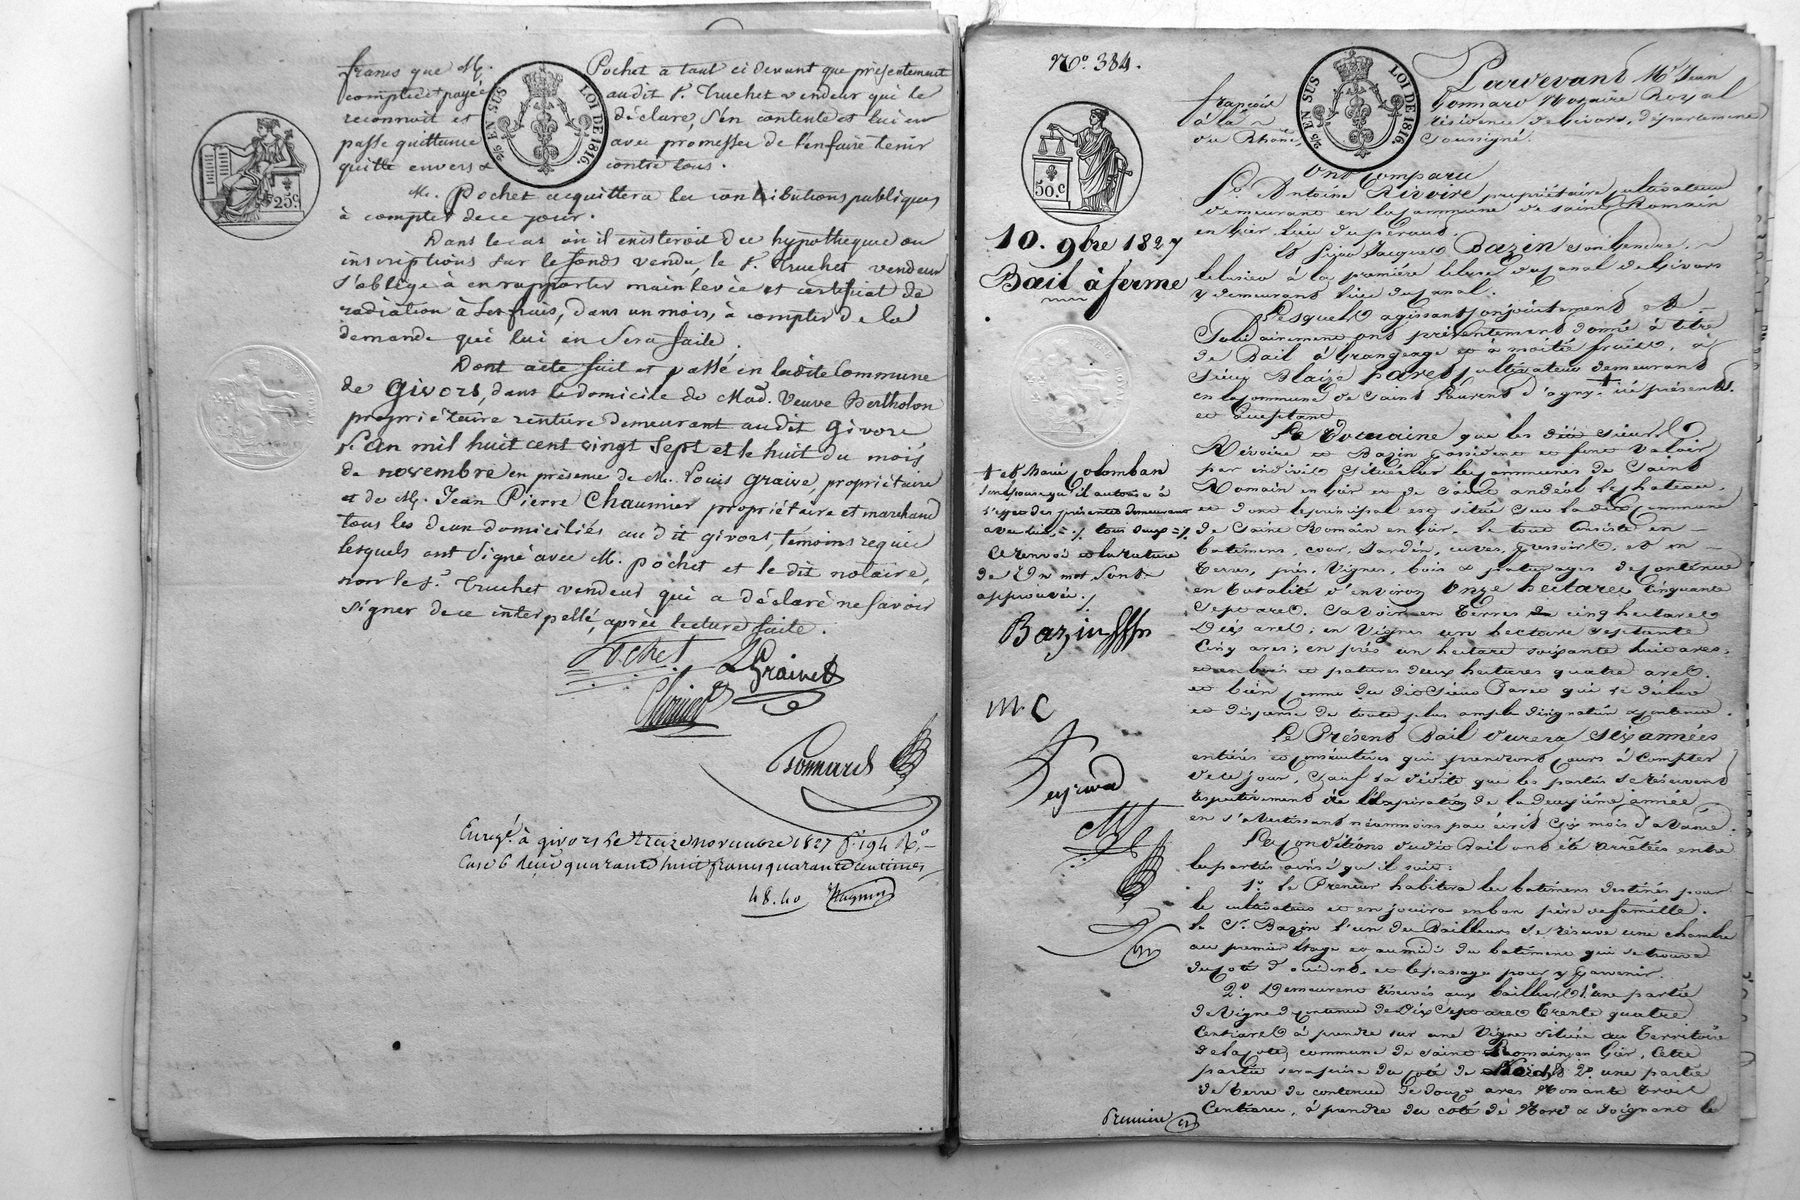 francs que M. Pochet a tout ci devant que présentement
compté et payée audit S. Truchet vendeur qui le
reconnoit et déclare, s'en contente et lui en
passe quittance avec promesse de l'en faire tenir
quitte envers & contre tous.
25 EN SUS LOI DE 1816.
25 c
M. Pochet acquittera les contributions publiques
à compter de ce jour.
Dans le cas où il existeroit des hypotheques ou
inscriptions sur le fonds vendu, le S. Truchet vendeur
s'oblige à en rapporter main levée et certificat de
radiation à ses frais, dans un mois, à compter de la
demande qui lui en sera faite.
Dont acte fait et passé en ladite Commune
de Givors, dans le domicile de Mad. Veuve Bertholon
propriétaire rentière demeurant audit Givors
L'an mil huit cent vingt sept et le huit du mois
de novembre en présence de M. Louis Graive, propriétaire
et de M. Jean Pierre Chaumier propriétaire et marchand
tous les deux domiciliés au dit givors, témoins requis
lesquels ont signé avec M. pochet et le dit notaire,
non le S. Truchet vendeur qui a déclaré ne savoir
signer de ce interpellé, après lecture faite.
Pochet
Bonnard
Enregé. à givors le treize novembre 1827 f. 194 Ro,
Case 6 Reçu quarante huit francs quarante centimes
48.40
No. 384.
25 EN SUS LOI DE 1816.
Pardevant Me. Jean
françois Bonnard Notaire Royal
à la résidence de Givors, département
du Rhône, soussigné.
50 c
Ont Comparu
Sr. Antoine Rivoire propriétaire cultivateur
demeurant en la Commune de saint Romain
en Gier, lieu du peraud.
10. 9bre 1827
Bail à ferme
Et Sieur Jacques Bazin son Gendre,
à la première écluse du Canal de Givors
y demeurant lieu du Canal.
Lesquels agissant conjointement et
solidairement ont présentement donné à titre
de Bail à Grangeage et à moitié fruits, à
Sieur Blaize paret cultivateur demeurant
en la commune de Saint Laurent d'agny + ici présents
et acceptant
Le Domaine que les dits sieurs
Rivoire et Bazin possèdent et font valoir
par indivis situé sur les communes de Saint
Romain en Gier et de Saint andéol le chateau,
et dont le principal est situé sur la dite Commune
de Saint Romain en Gier. Le tout consiste en
batimens, cour, Jardin, cuves, pressoirs, et en
terres, prés, Vignes, bois & paturages de contenue
en totalité d'environ Onze hectares Cinquante
Sept ares. Savoir en terres cinq hectares
Dix ares; en Vignes un hectare septante
Cinq ares; en prés un hectare soixante huit ares;
et en bois et patures deux hectares quatre ares,
et bien connue du dit Sieur Paret qui le déclare
et dispense de toute plus ample désignation & contenue.
+ et Marie Colomban
son épouse qu'il autorise à
l'effet des présentes demeurant
avec lui =/. tous deux =/.
Ce renvoi et la rature
de Un mot sont
approuvés./.
Bazin
M C
Le Présent Bail durera six années
entières et consécutives qui prendront Cours à Compter
de ce jour, Sauf la dédite que les parties se réservent
respectivement de l'expiration de la deuxième année
en s'avertissant néanmoins par écrit Six mois d'avance.
Les Conditions dudit Bail ont été arrêtées entre
les parties ainsi qu'il suit:
1o. Le Preneur habitera les batimens destinés pour
le cultivateur et en jouira en bon père de famille.
Le Sr. Bazin l'un des Bailleurs se réserve une chambre
au premier étage et au midi du batiment qui se trouve
du coté d'occident, et le passage pour y parvenir.
2o. Demeurent réservés aux bailleurs 1o une partie
de Vigne de contenue de Dix Sept ares Trente quatre
Centiares à prendre sur une Vigne située au Territoire
de la Cote, commune de Saint Romain en Gier, Cette
partie sera prise du coté de Nord, & 2o. une partie
de terre de contenue de douze ares Nonante trois
Centiares, à prendre du coté de Nord & joignant le
Première